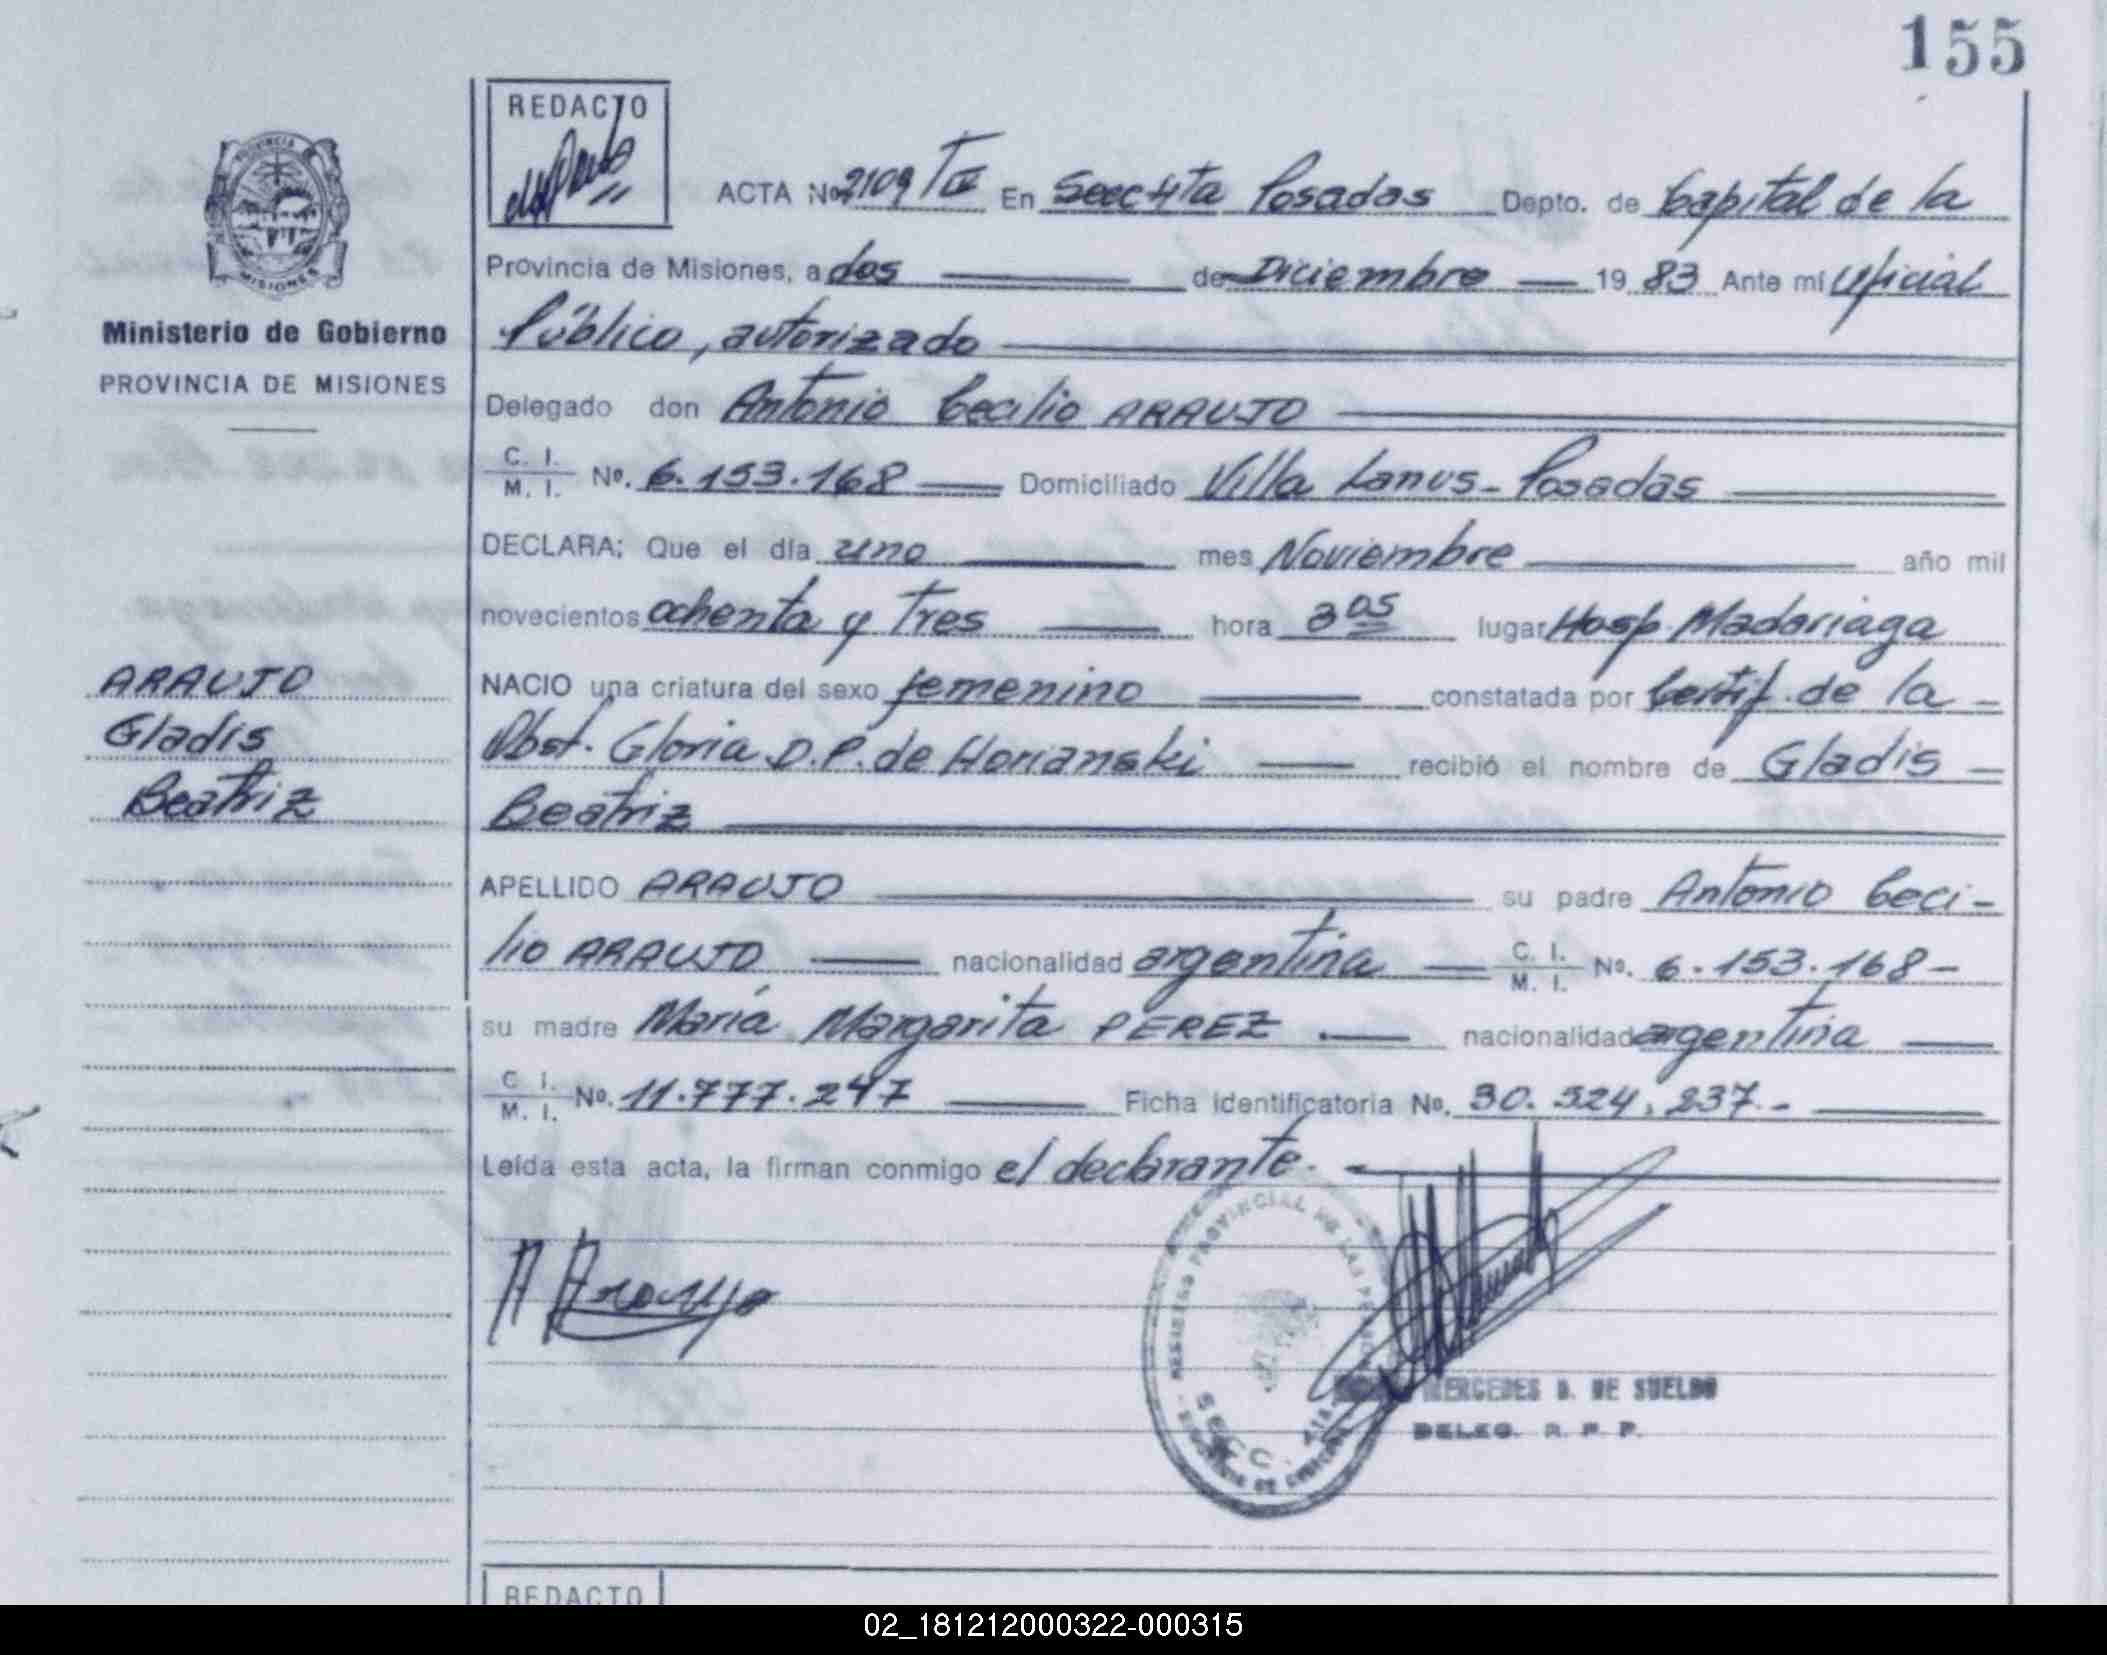 155
REDACTO
PROVINCIA
MISIONES
ACTA No 2109 TIV En Secc 4ta Posadas Depto. de Capital de la
Provincia de Misiones, a dos de Diciembre 1983 Ante mí Oficial
Ministerio de Gobierno
Público, autorizado
PROVINCIA DE MISIONES
Delegado don Antonio Cecilio ARAUJO
C. I.
M. I. No. 6.153.168 Domiciliado Villa Lanus - Posadas
DECLARA: Que el día uno mes Noviembre año mil
novecientos ochenta y tres hora 3 05 lugar Hosp. Madariaga
ARAUJO
NACIO una criatura del sexo femenino constatada por Certif. de la -
Gladis
Obst. Gloria D.P. de Horianski recibió el nombre de Gladis -
Beatriz
Beatriz
APELLIDO ARAUJO su padre Antonio Ceci-
lio ARAUJO nacionalidad argentina C. I.
M. I. No. 6.153.168-
su madre María Margarita PEREZ nacionalidad argentina
C. I.
M. I. No. 11.777.247 Ficha identificatoria No. 30.524.237.-
Leída esta acta, la firman conmigo el declarante.-
A Araujo
REGISTRO PROVINCIAL DE LAS PERSONAS
SECC. 4ta
MERCEDES D. DE SUELDO
DELEG. R. P. P.
REDACTO
02_181212000322-000315